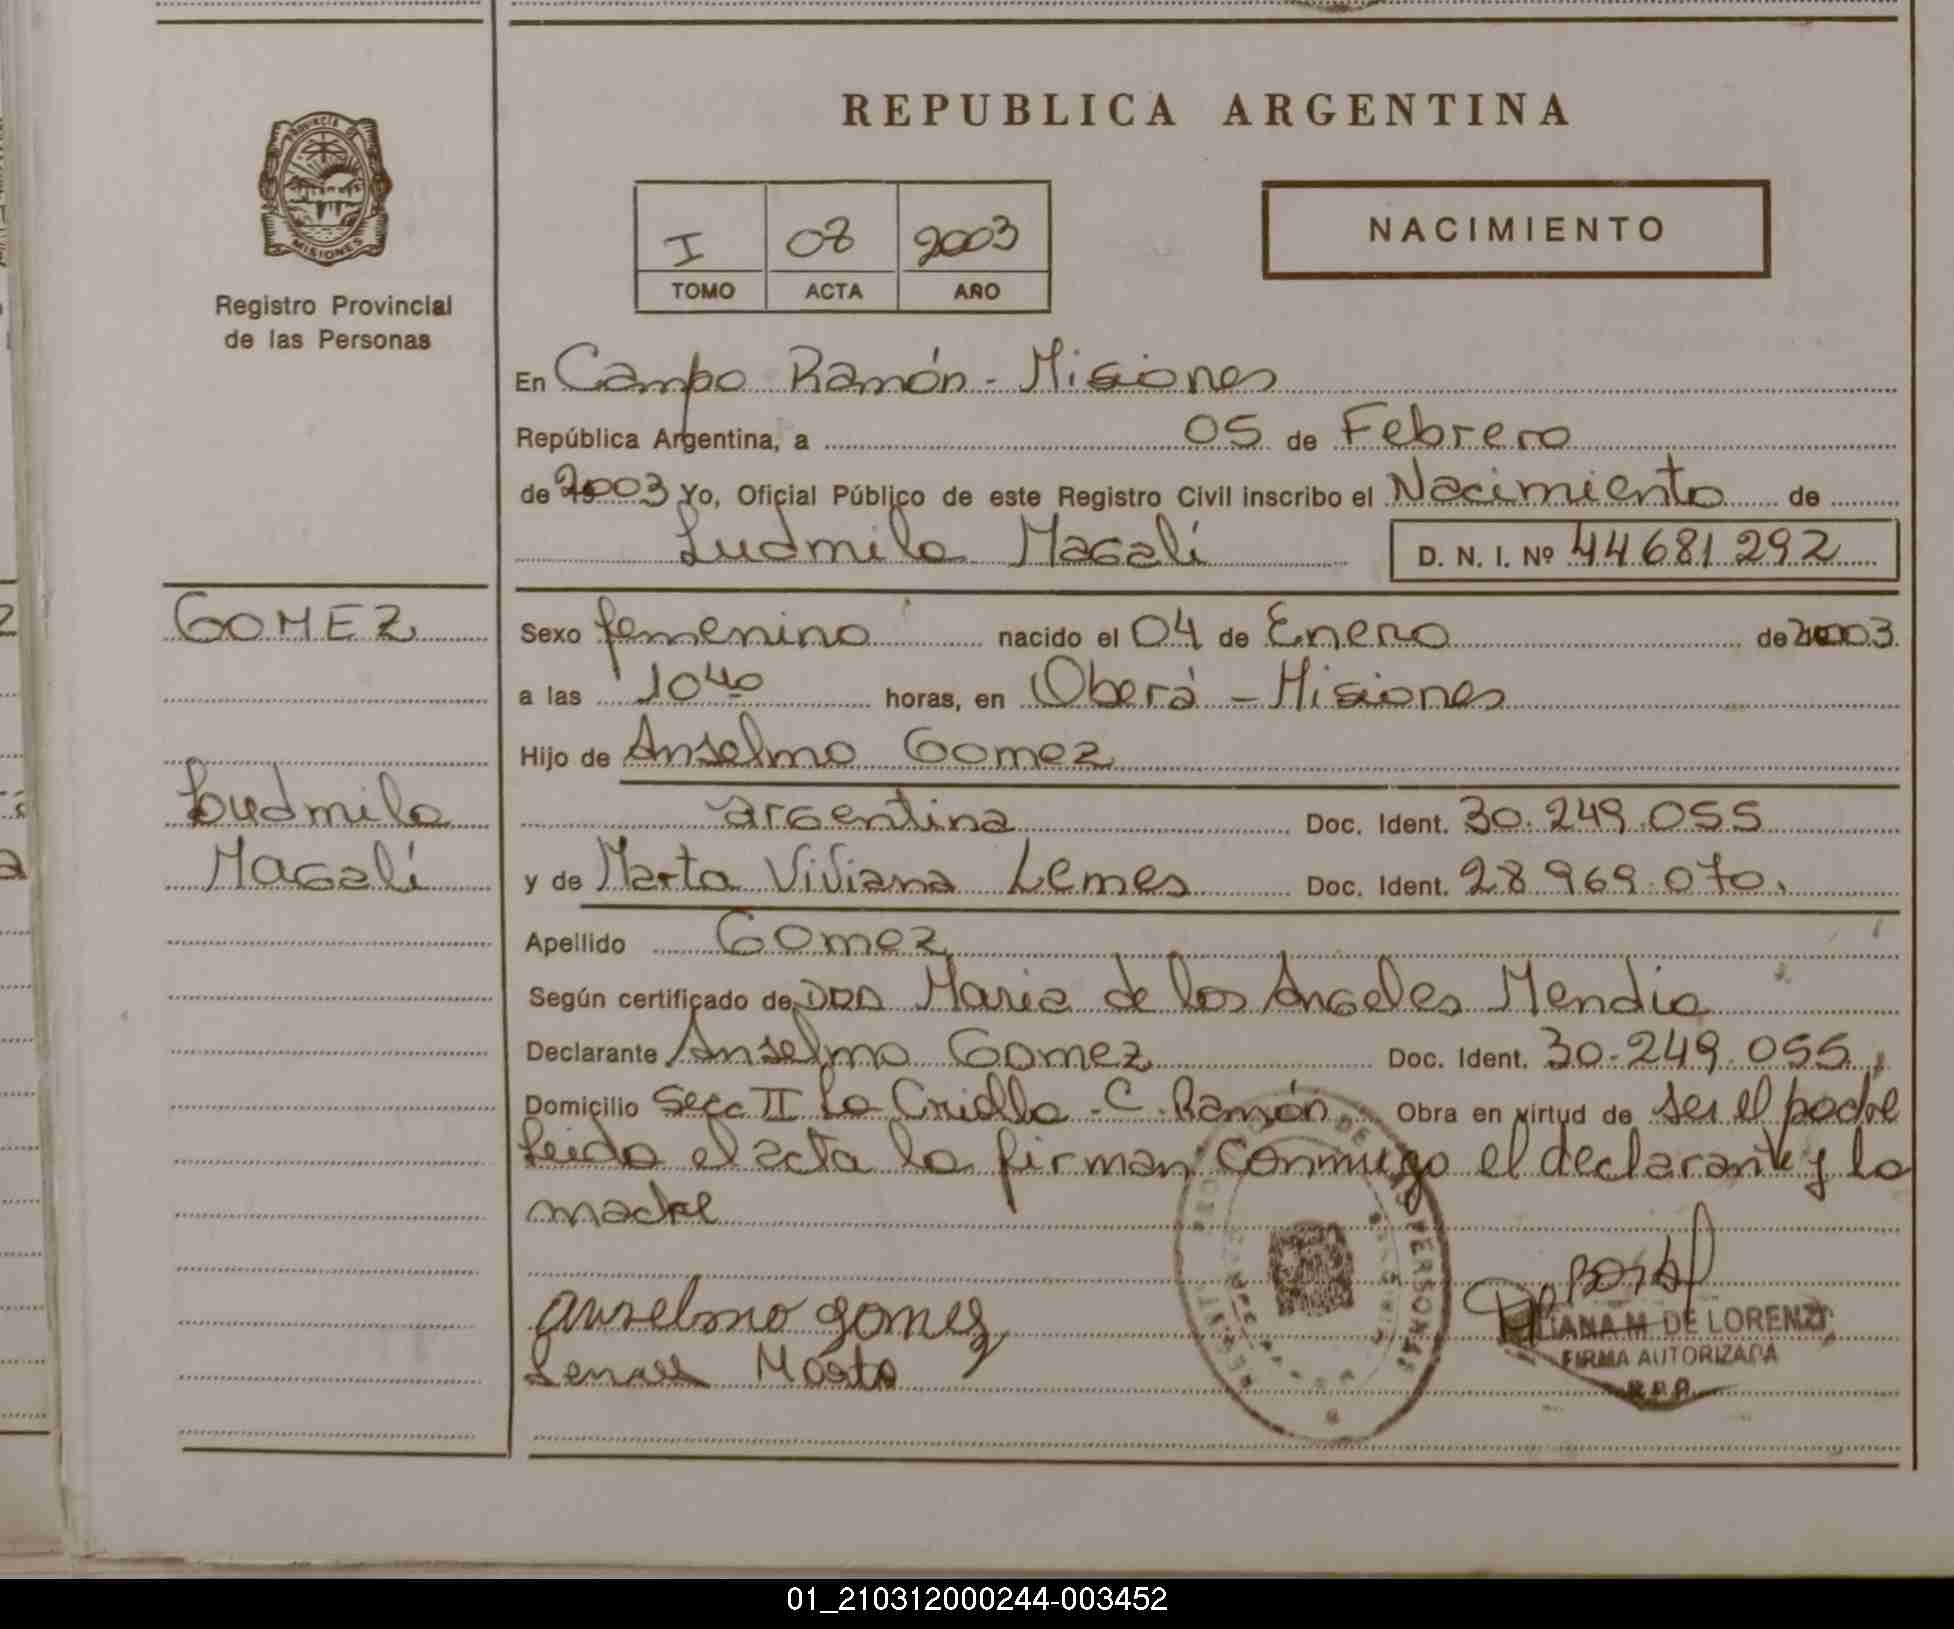 REPUBLICA ARGENTINA
PROVINCIA DE
MISIONES
Registro Provincial
de las Personas
I 08 2003
TOMO ACTA AÑO
NACIMIENTO
En Campo Ramón - Misiones
República Argentina, a 05 de Febrero
de 2003 Yo, Oficial Público de este Registro Civil inscribo el Nacimiento de
Ludmila Magalí D. N. I. Nº 44681292
GOMEZ
Ludmila
Magalí
Sexo femenino nacido el 04 de Enero de 2003
a las 10 40 horas, en Oberá - Misiones
Hijo de Anselmo Gomez
argentina Doc. Ident. 30.249.055
y de Marta Viviana Lemes Doc. Ident. 28969.070.
Apellido Gomez
Según certificado de DRA Maria de los Angeles Mendia
Declarante Anselmo Gomez Doc. Ident. 30.249.055
Domicilio Secc II La Criolla - C. Ramón Obra en virtud de ser el padre
Leida el acta la firman conmigo el declarante y la
madre
anselmo gomez
Marta
DE LAS PERSONAS
LILIANA M. DE LORENZI
FIRMA AUTORIZADA
R.P.P.
01_210312000244-003452